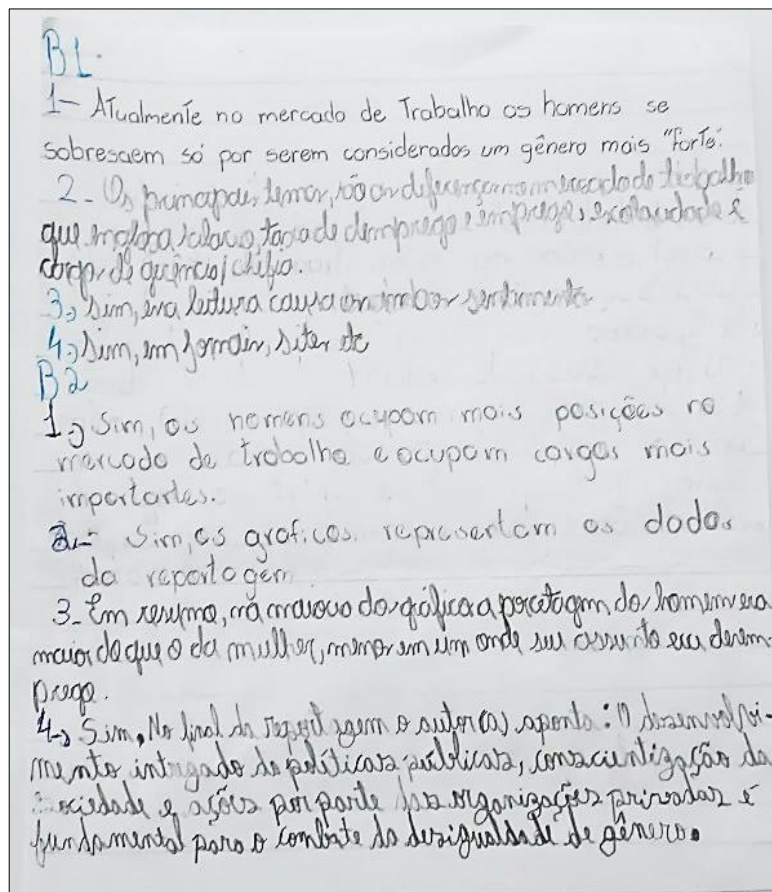 B1.
1- Atualmente no mercado de Trabalho os homens se
sobresaem só por serem considerados um gênero mais "forte".
2- Os principais temas, são as diferenças no mercado de trabalho
que engloba salario, taxa de demprego e emprego, escolaridade e
cargo de gerência/chefia.
3→ Sim, essa leitura causa ambos sentimentos
4→ Sim, em jornais, sites etc
B2
1→ Sim, os homens ocupam mais posições no
mercado de trabalho e ocupam cargos mais
importantes.
2- Sim, os gráficos representam os dados
da reportagem
3- Em resumo, na maioria do gráfico a porcetagem do homem era
maior do que o da mulher, menor em um onde seu assunto era desem-
prego.
4→ Sim, No final da reportagem o autor(a) aponta: O desenvolvi-
mento intregado de políticas públicas, conscientização da
sociedade e ações por parte das organizações privadas é
fundamental para o combate da desigualdade de gênero.